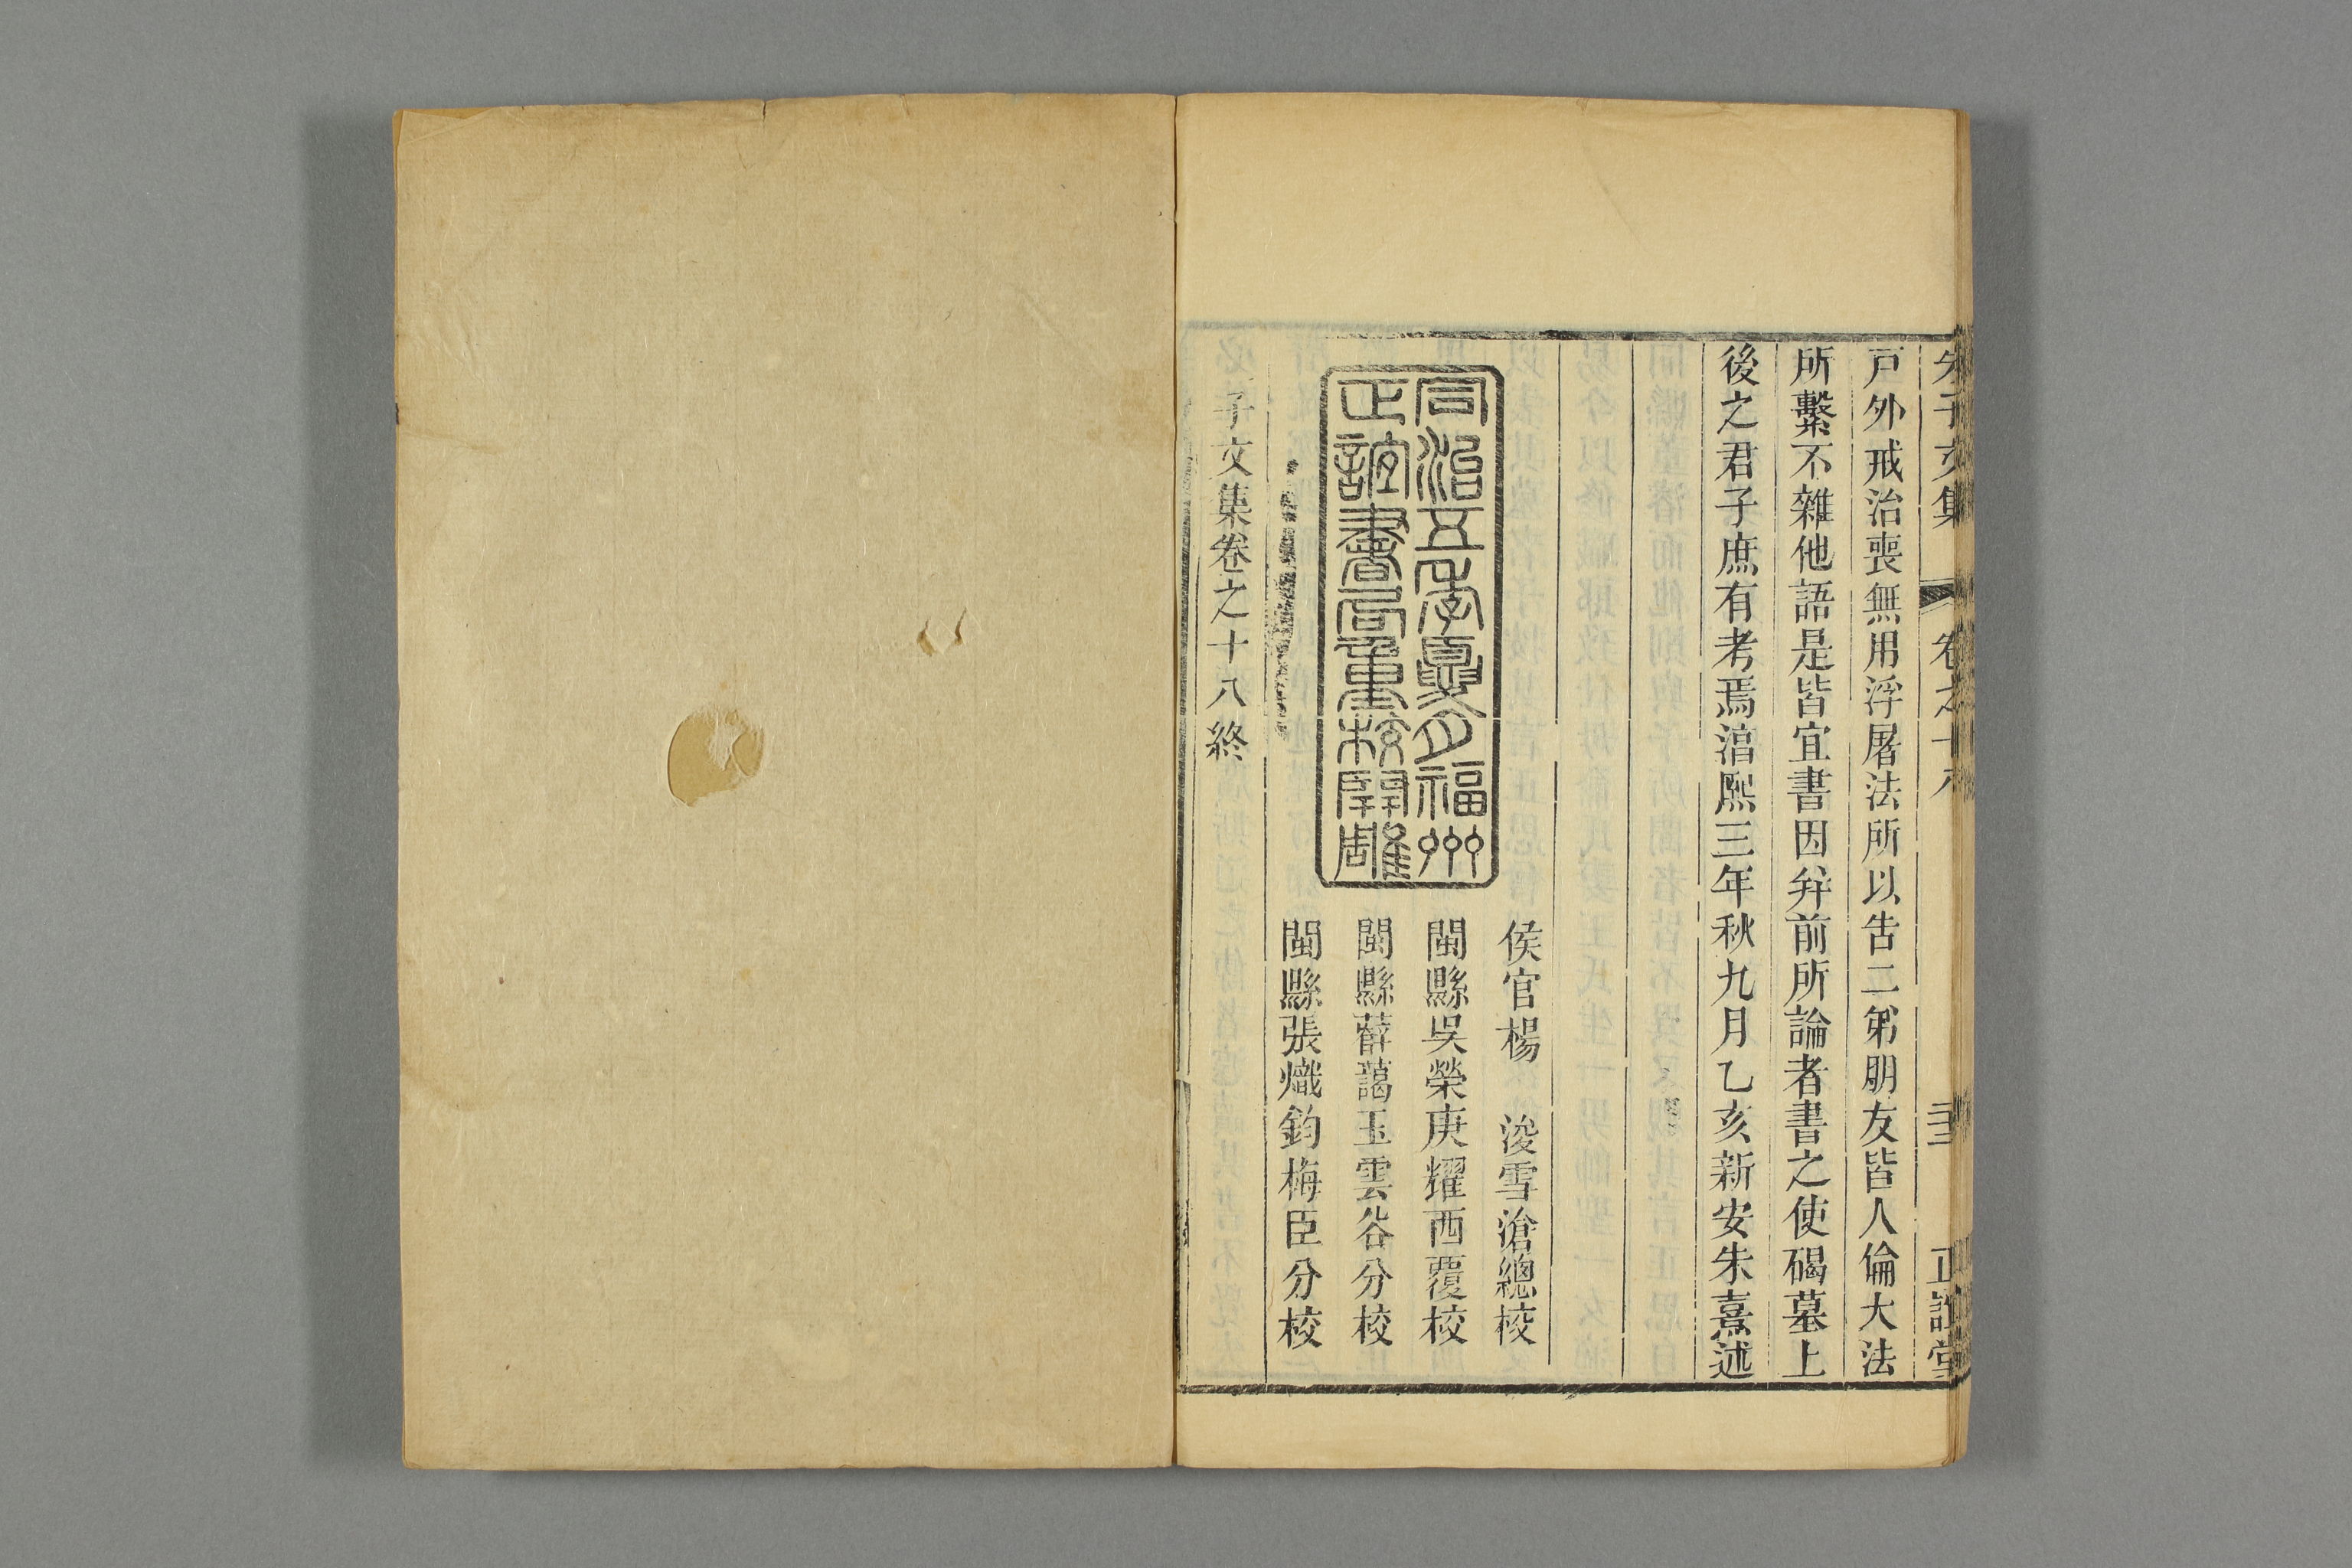 朱子文集 卷之十八 正誼堂
戸外戒治喪無用浮屠法所以告二弟朋友皆人倫大法
所繫不雜他語是皆宜書因幷前所論者書之使碣墓上
後之君子庶有考焉淳熙三年秋九月乙亥新安朱熹述
同治五年夏月福州
正誼書局重校開雕
侯官楊 浚雪滄總校
閩縣吳榮庚耀西覆校
閩縣薛藹玉雲谷分校
閩縣張熾鈞梅臣分校
子文集卷之十八終